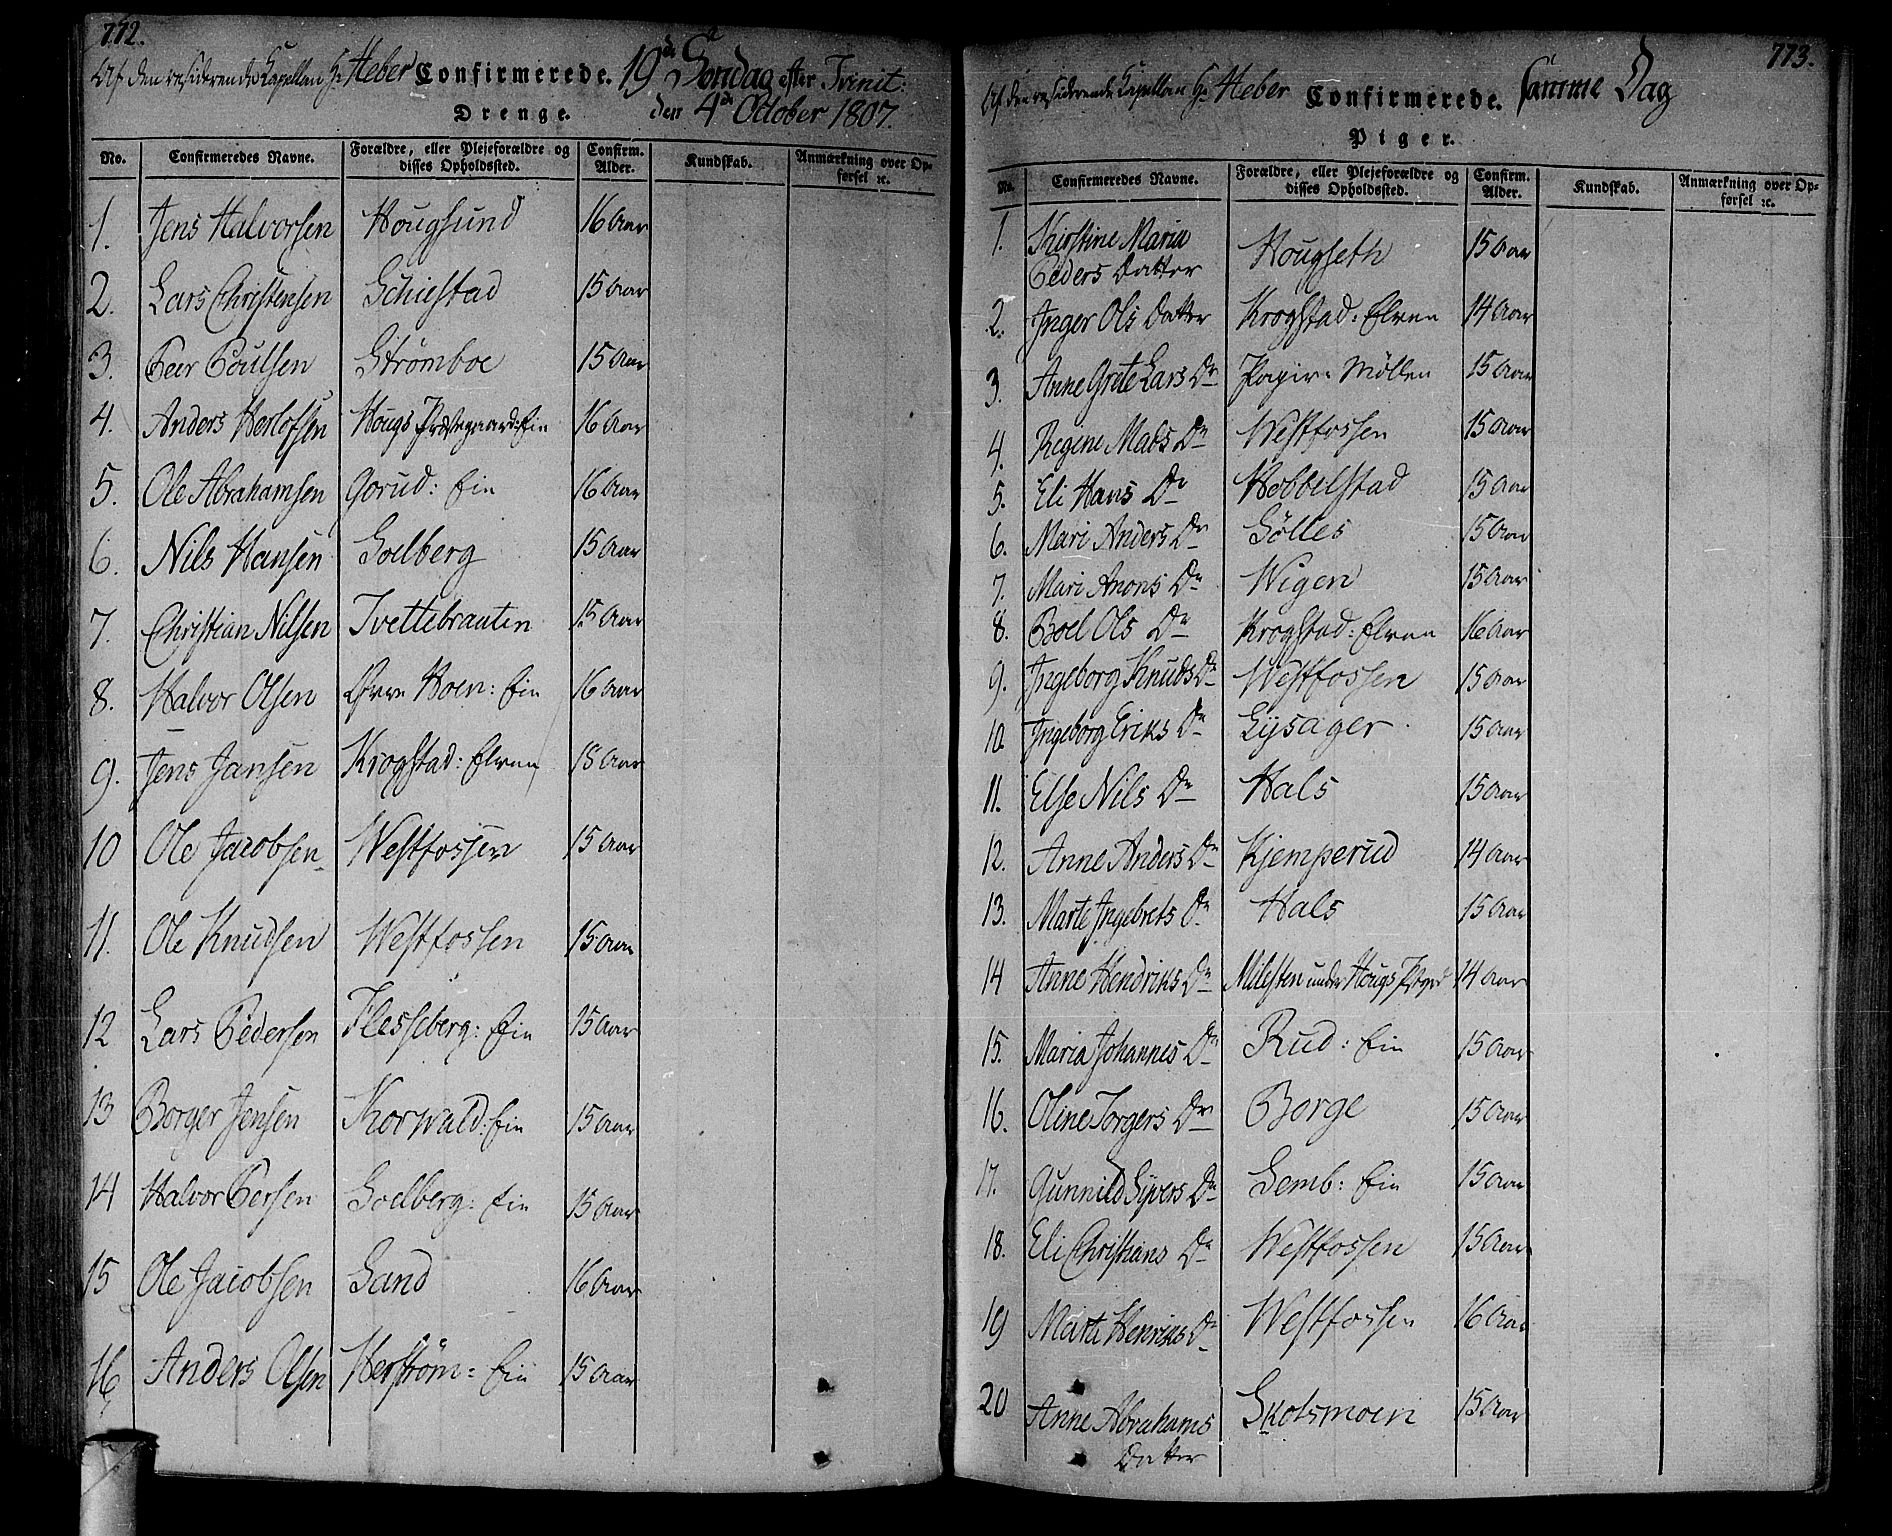 772.
Af den residerende Capellan Hr Heber Confirmerede. 19de Søndag efter Trinit:
Drenge. den 4de October 1807.
No. Confirmeredes Navne. Forældre, eller Plejeforældre og disses Opholdssted. Confirm. Alder. Kundskab. Anmærkning over Opførsel ꝛc.
1. Jens Halvorsen Hougsund 16 Aar
2. Lars Christensen Schiestad 15 Aar
3. Peer Poulsen Strømboe 15 Aar
4. Anders Herlofsen Hougs Præstegaard: Eie 16 Aar
5. Ole Abrahamsen Gorud: Eie 16 Aar
6. Nils Hansen Soelberg 15 Aar
7. Christian Nilsen Tvettebraaten 15 Aar
8. Halvor Olsen Øvre Hoen: Eie 16 Aar
9. Jens Jansen Krogstad: Elven 18 Aar
10 Ole Jacobsen Westfossen 15 Aar
11. Ole Knudsen Westfossen 15 Aar
12 Lars Pedersen Flesseberg: Eie 15 Aar
13 Borger Jensen Korwald: Eie 15 Aar
14 Halvor Persen Soelberg: Eie 15 Aar
15 Ole Jacobsen Sand 16 Aar
16 Anders Olsen Herstrøm: Eie 15 Aar
773.
Af den residerende Capellan Hr Heber Confirmerede. samme Dag
Piger.
No. Confirmeredes Navne. Forældre, eller Plejeforældre og disses Opholdssted. Confirm. Alder. Kundskab. Anmærkning over Opførsel ꝛc.
1. Kirstine Maria Peders Datter Hougseth 15 Aar
2. Inger Ols Datter Krogstad: Elven 14 Aar
3. Anne Grete Lars Dr Papir Møllen 15 Aar
4. Regine Mads Dr Westfossen 15 Aar
5. Eli Hans Dr Hobbelstad 15 Aar
6. Mari Anders Dr Søltes 15 Aar
7. Mari Anons Dr Wigen 15 Aar
8. Boel Ols Dr Krogstad: Elven 16 Aar
9. Ingeborg Knuds Dr Westfossen 15 Aar
10. Ingeborg Eriks Dr Lysager 15 Aar
11. Else Nils Dr Hals 15 Aar
12. Anne Anders Dr Kjemperud 14 Aar
13. Marte Ingebrets Dr Hals 15 Aar
14 Anne Hendriks Dr Milesten under Hougs Pgrd 14 Aar
15. Maria Johannes Dr Rud: Eie 15 Aar
16. Oline Torgers Dr Borge 15 Aar
17. Gunnild Syvers Dr Semb: Eie 15 Aar
18. Eli Christians Dr Westfossen 15 Aar
19 Marte Henriks Dr Westfossen 16 Aar
20 Anne Abrahams Datter Skotsmoen 15 Aar